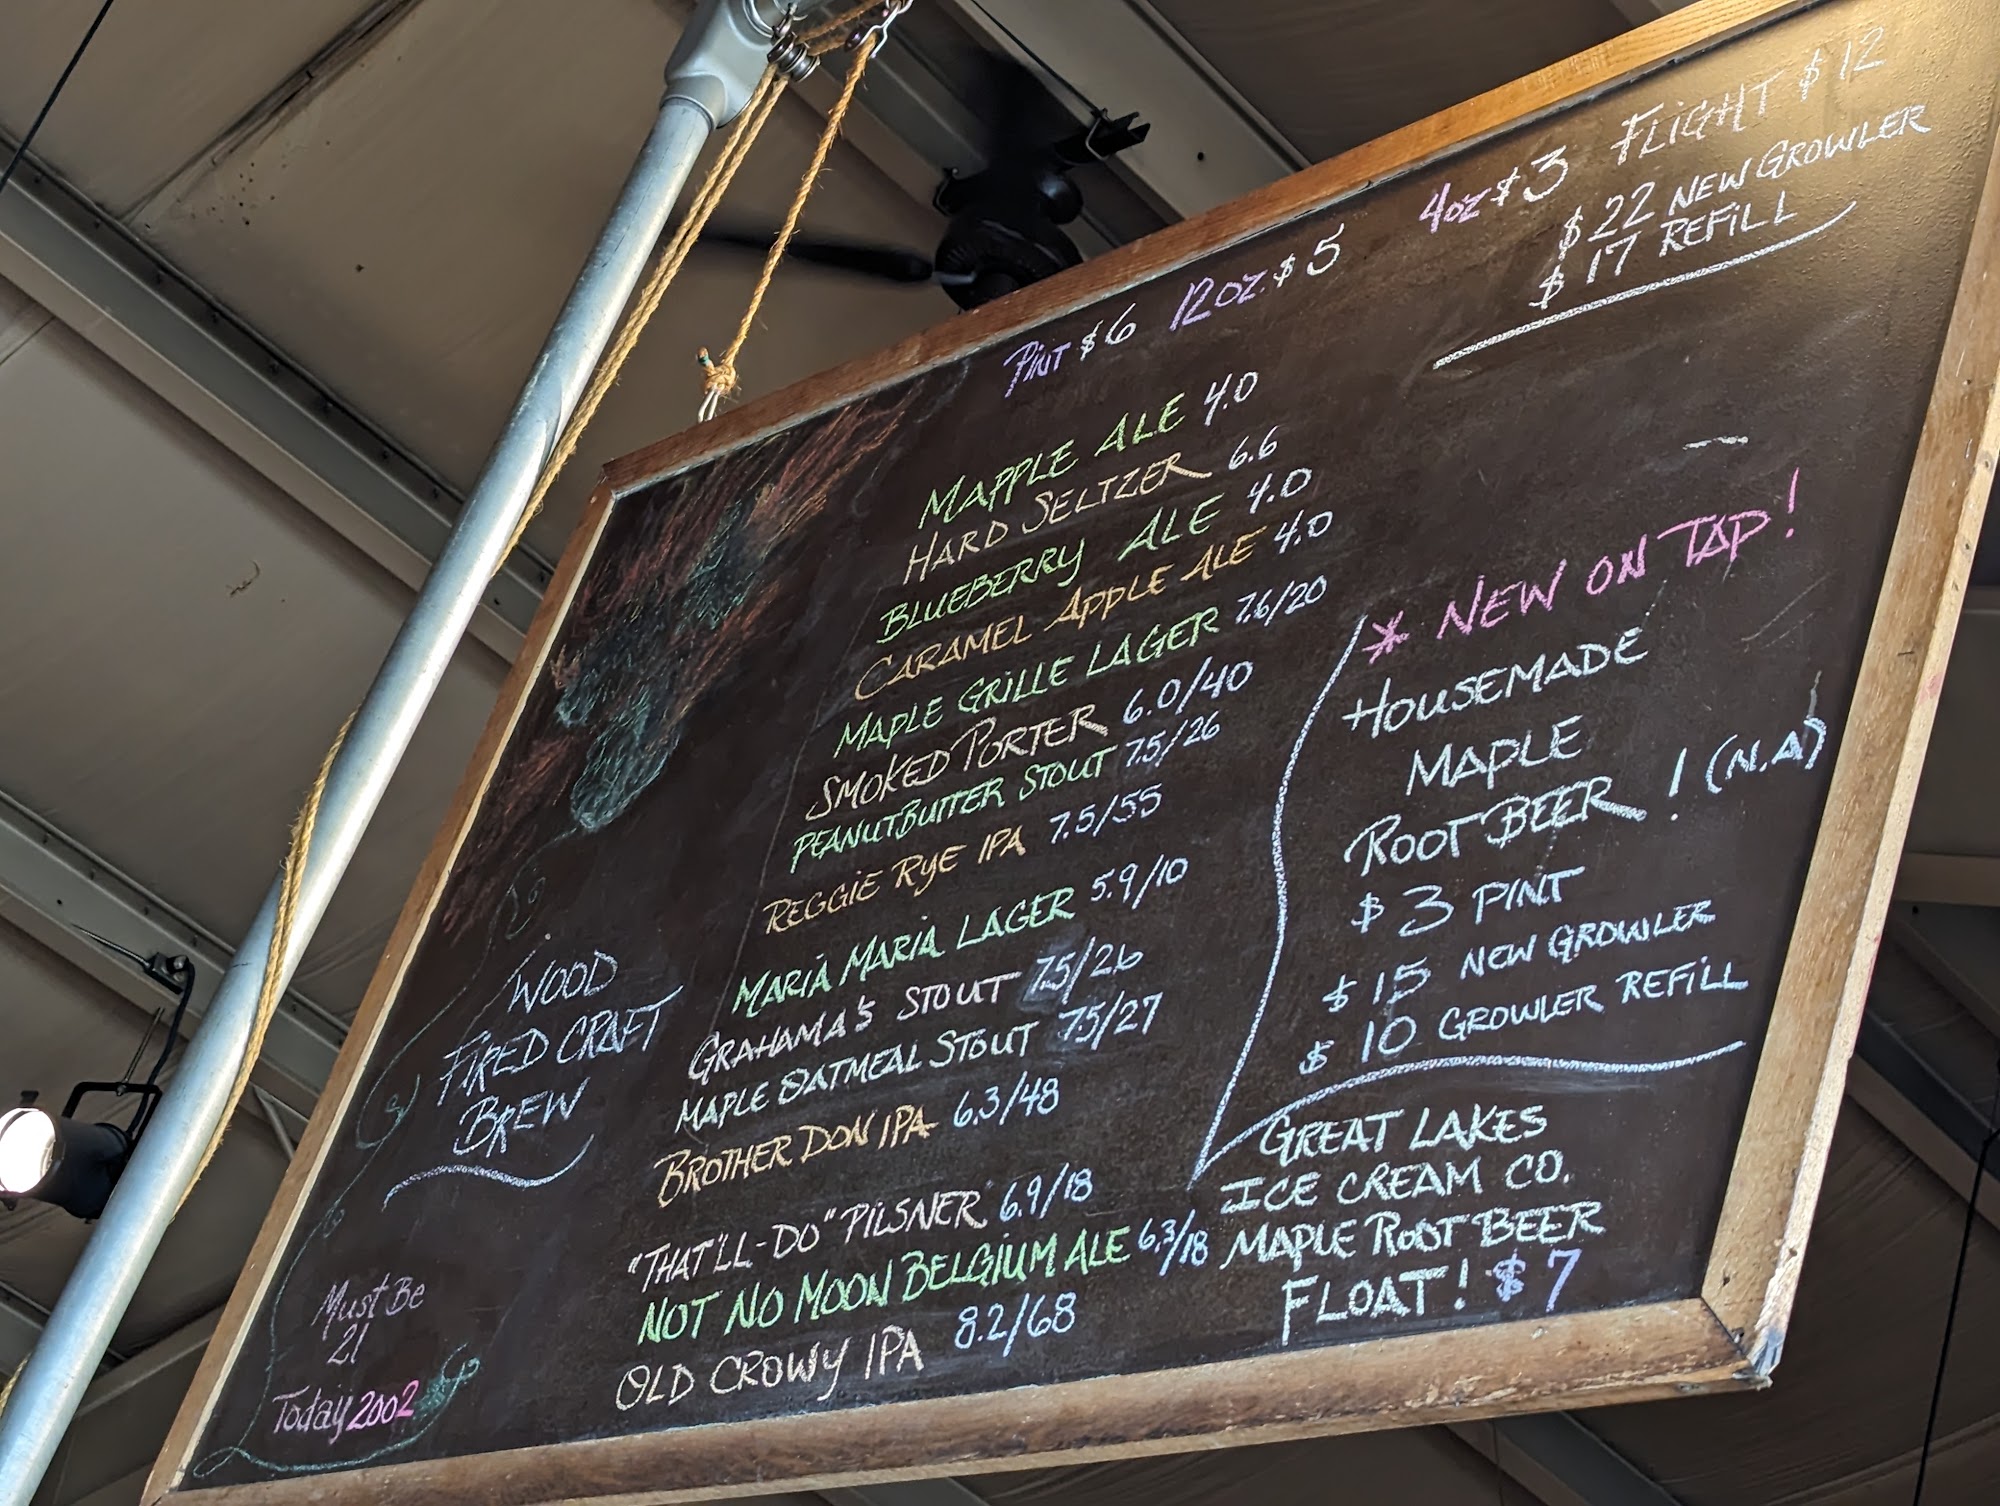 PINT $6 12oz $5 4oz $3 FLIGHT $12
$22 NEW GROWLER
$17 REFILL
MAPPLE ALE 4.0
HARD SELTZER 6.6
BLUEBERRY ALE 4.0
CARAMEL APPLE ALE 4.0
MAPLE GRILLE LAGER 7.6/20
SMOKED PORTER 6.0/40
PEANUTBUTTER STOUT 7.5/26
REGGIE RYE IPA 7.5/55
MARIA MARIA LAGER 5.9/10
GRAHAMA'S STOUT 7.5/26
MAPLE OATMEAL STOUT 7.5/27
BROTHER DON IPA 6.3/48
"THAT'LL-DO" PILSNER 6.9/18
NOT NO MOON BELGIUM ALE 6.3/18
OLD CROWY IPA 8.2/68
* NEW ON TAP!
HOUSEMADE
MAPLE
ROOT BEER! (N.A)
$3 PINT
$15 NEW GROWLER
$10 GROWLER REFILL
GREAT LAKES
ICE CREAM CO.
MAPLE ROOT BEER
FLOAT! $7
WOOD
FIRED CRAFT
BREW
Must Be
21
Today 2002